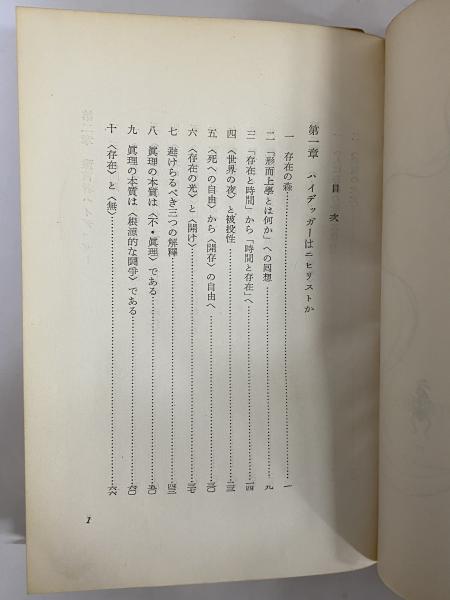 目次
第一章 ハイデッガーはニヒリストか
一 存在の森……一
二 「形而上學とは何か」への囘想……九
三 「存在と時間」から「時間と存在」へ……一四
四 〈世界の夜〉と被投性……二三
五 〈死への自由〉から〈開存〉の自由へ……三〇
六 〈存在の光〉と〈開け〉……三七
七 避けらるべき三つの解釋……四三
八 眞理の本質は〈不・眞理〉である……五〇
九 眞理の本質は〈根源的な鬪爭〉である……六〇
十 〈存在〉と〈無〉……六六
1